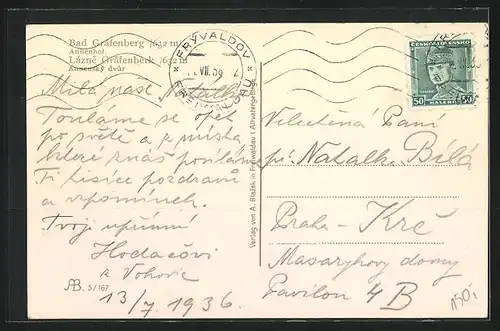 Bad Gräfenberg /632 m
Annenhof
Lázně Gräfenberk /632 m
Annenský dvůr
FRÝVALDOV
FREIWALDAU
VII. 36
2
ČESKOSLOVENSKO
50 50
HALÉŘŮ
Milá naše
Touláme se opět
po světě a z místa,
které znáš posíláme
Ti tisíce pozdravů
a vzpomínek.
Tvoji upřímní
Hodačovi
z Vokovic
13/7. 1936
AB 5/167
Verlag von A. Blažek in Freiwaldau i. Altvatergebirge
Velectěná Paní
pí. Natalk. Bílá
Praha - Krč
Masarykovy domy
Pavilon 4 B
150,-